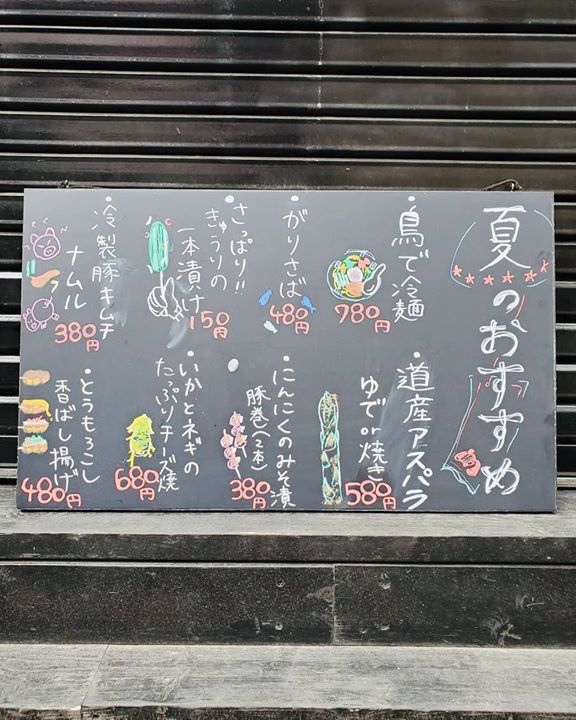 夏のおすすめ
・鳥で冷麺
780円
・がりさば
480円
・さっぱり!!
きゅうりの
一本漬け
150円
・冷製豚キムチ
ナムル
380円
・道産アスパラ
ゆでor焼き
580円
・にんにくのみそ漬
豚巻(2本)
380円
・いかとネギの
たっぷりチーズ焼
680円
・とうもろこし
香ばし揚げ
480円